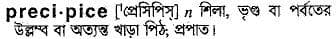 preci·pice [ˈপ্রেসিপিস্] n শিলা, ভৃগু বা পর্বতের
উল্লম্ব বা অত্যন্ত খাড়া পিঠ, প্রপাত।